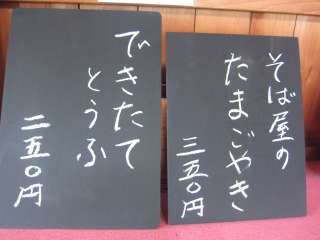 そば屋の
たまごやき
三五〇円
できたて
とうふ
二五〇円